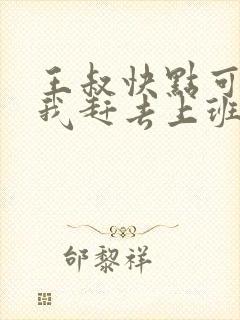 王叔快點可
我赶去上班
邰黎祥